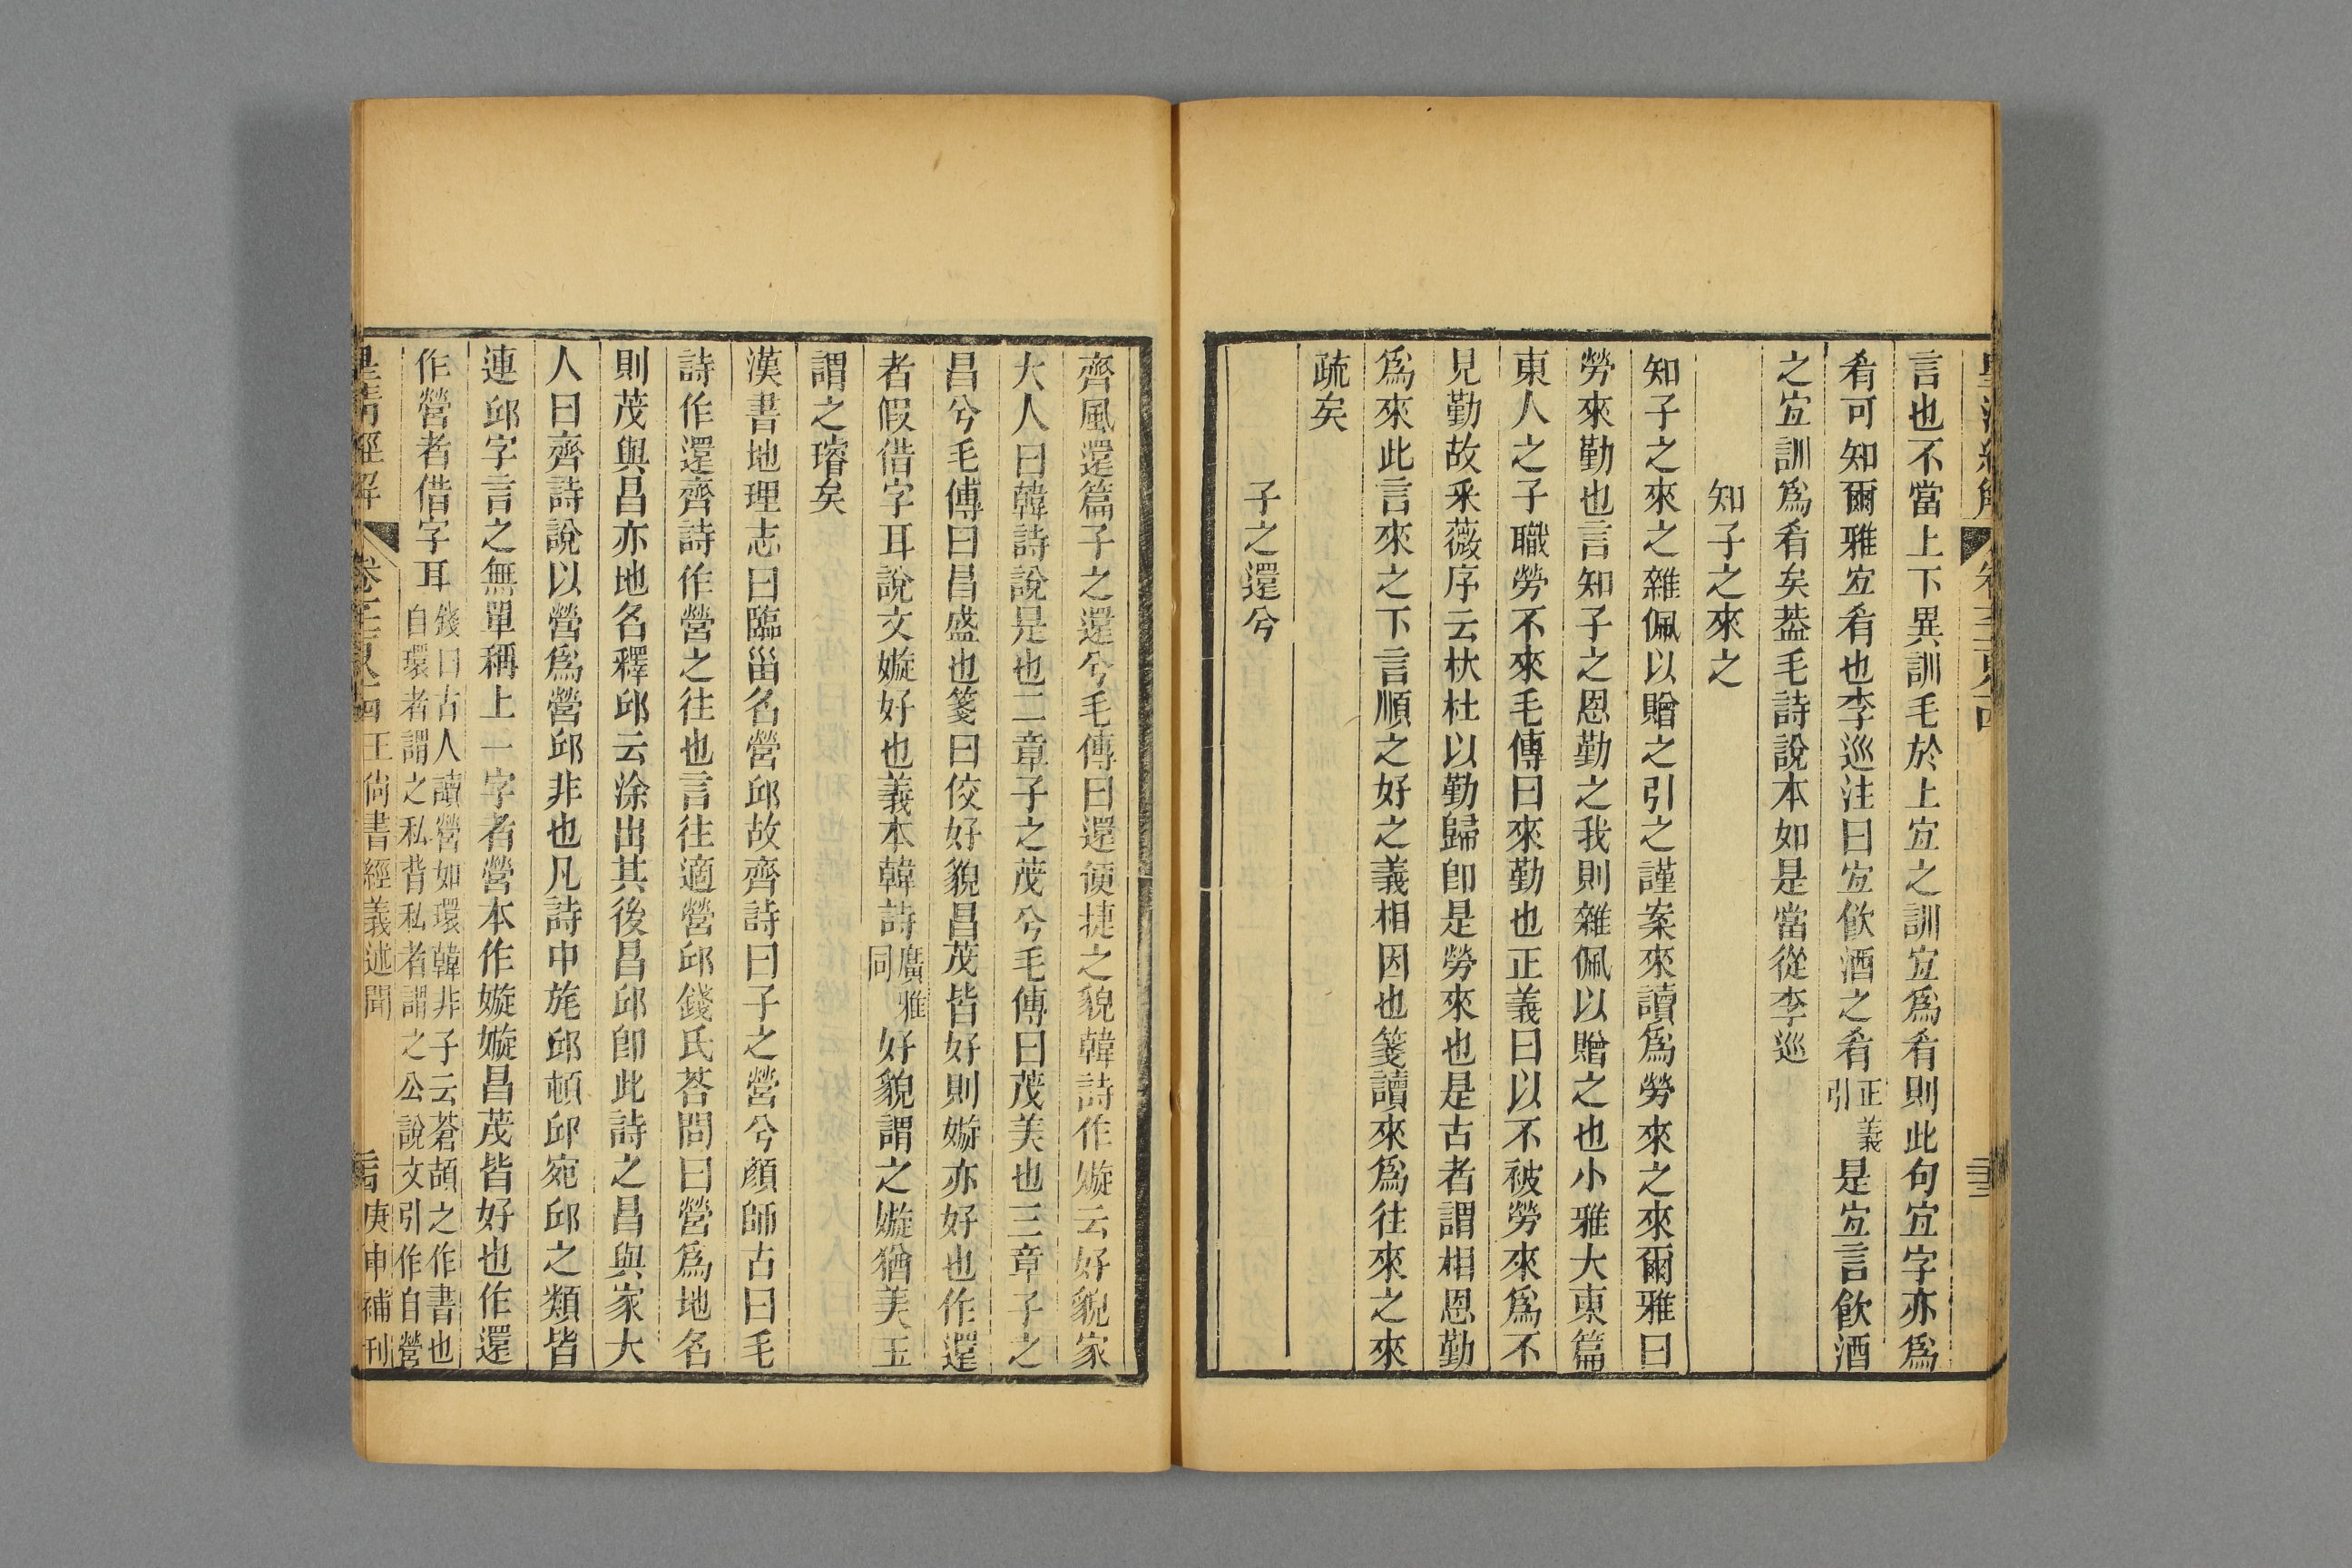 言也不當上下異訓毛於上宐之訓宐爲肴則此句宐字亦爲
肴可知爾雅宐肴也李巡注曰宐飲酒之肴正義引是宐言飲酒
之宐訓爲肴矣葢毛詩說本如是當從李巡
知子之來之
知子之來之雜佩以贈之引之謹案來讀爲勞來之來爾雅曰
勞來勤也言知子之恩勤之我則雜佩以贈之也小雅大東篇
東人之子職勞不來毛傳曰來勤也正義曰以不被勞來爲不
見勤故采薇序云杕杜以勤歸卽是勞來也是古者謂相恩勤
爲來此言來之下言順之好之義相因也箋讀來爲往來之來
疏矣
子之還兮
齊風還篇子之還兮毛傳曰還便捷之貌韓詩作嫙云好貌家
大人曰韓詩說是也二章子之茂兮毛傳曰茂美也三章子之
昌兮毛傳曰昌盛也箋曰佼好貌昌茂皆好則嫙亦好也作還
者假借字耳說文嫙好也義本韓詩廣雅同好貌謂之嫙猶美玉
謂之璿矣
漢書地理志曰臨甾名營邱故齊詩曰子之營兮顏師古曰毛
詩作還齊詩作營之往也言往適營邱錢氏荅問曰營爲地名
則茂與昌亦地名釋邱云涂出其後昌邱卽此詩之昌與家大
人曰齊詩說以營爲營邱非也凡詩中旄邱頓邱宛邱之類皆
連邱字言之無單稱上一字者營本作嫙嫙昌茂皆好也作還
作營者借字耳錢曰古人讀營如環韓非子云蒼頡之作書也自環者謂之私背私者謂之公說文引作自營
皇清經解 卷千一百八十四 王尙書經義述聞 庚申補刊